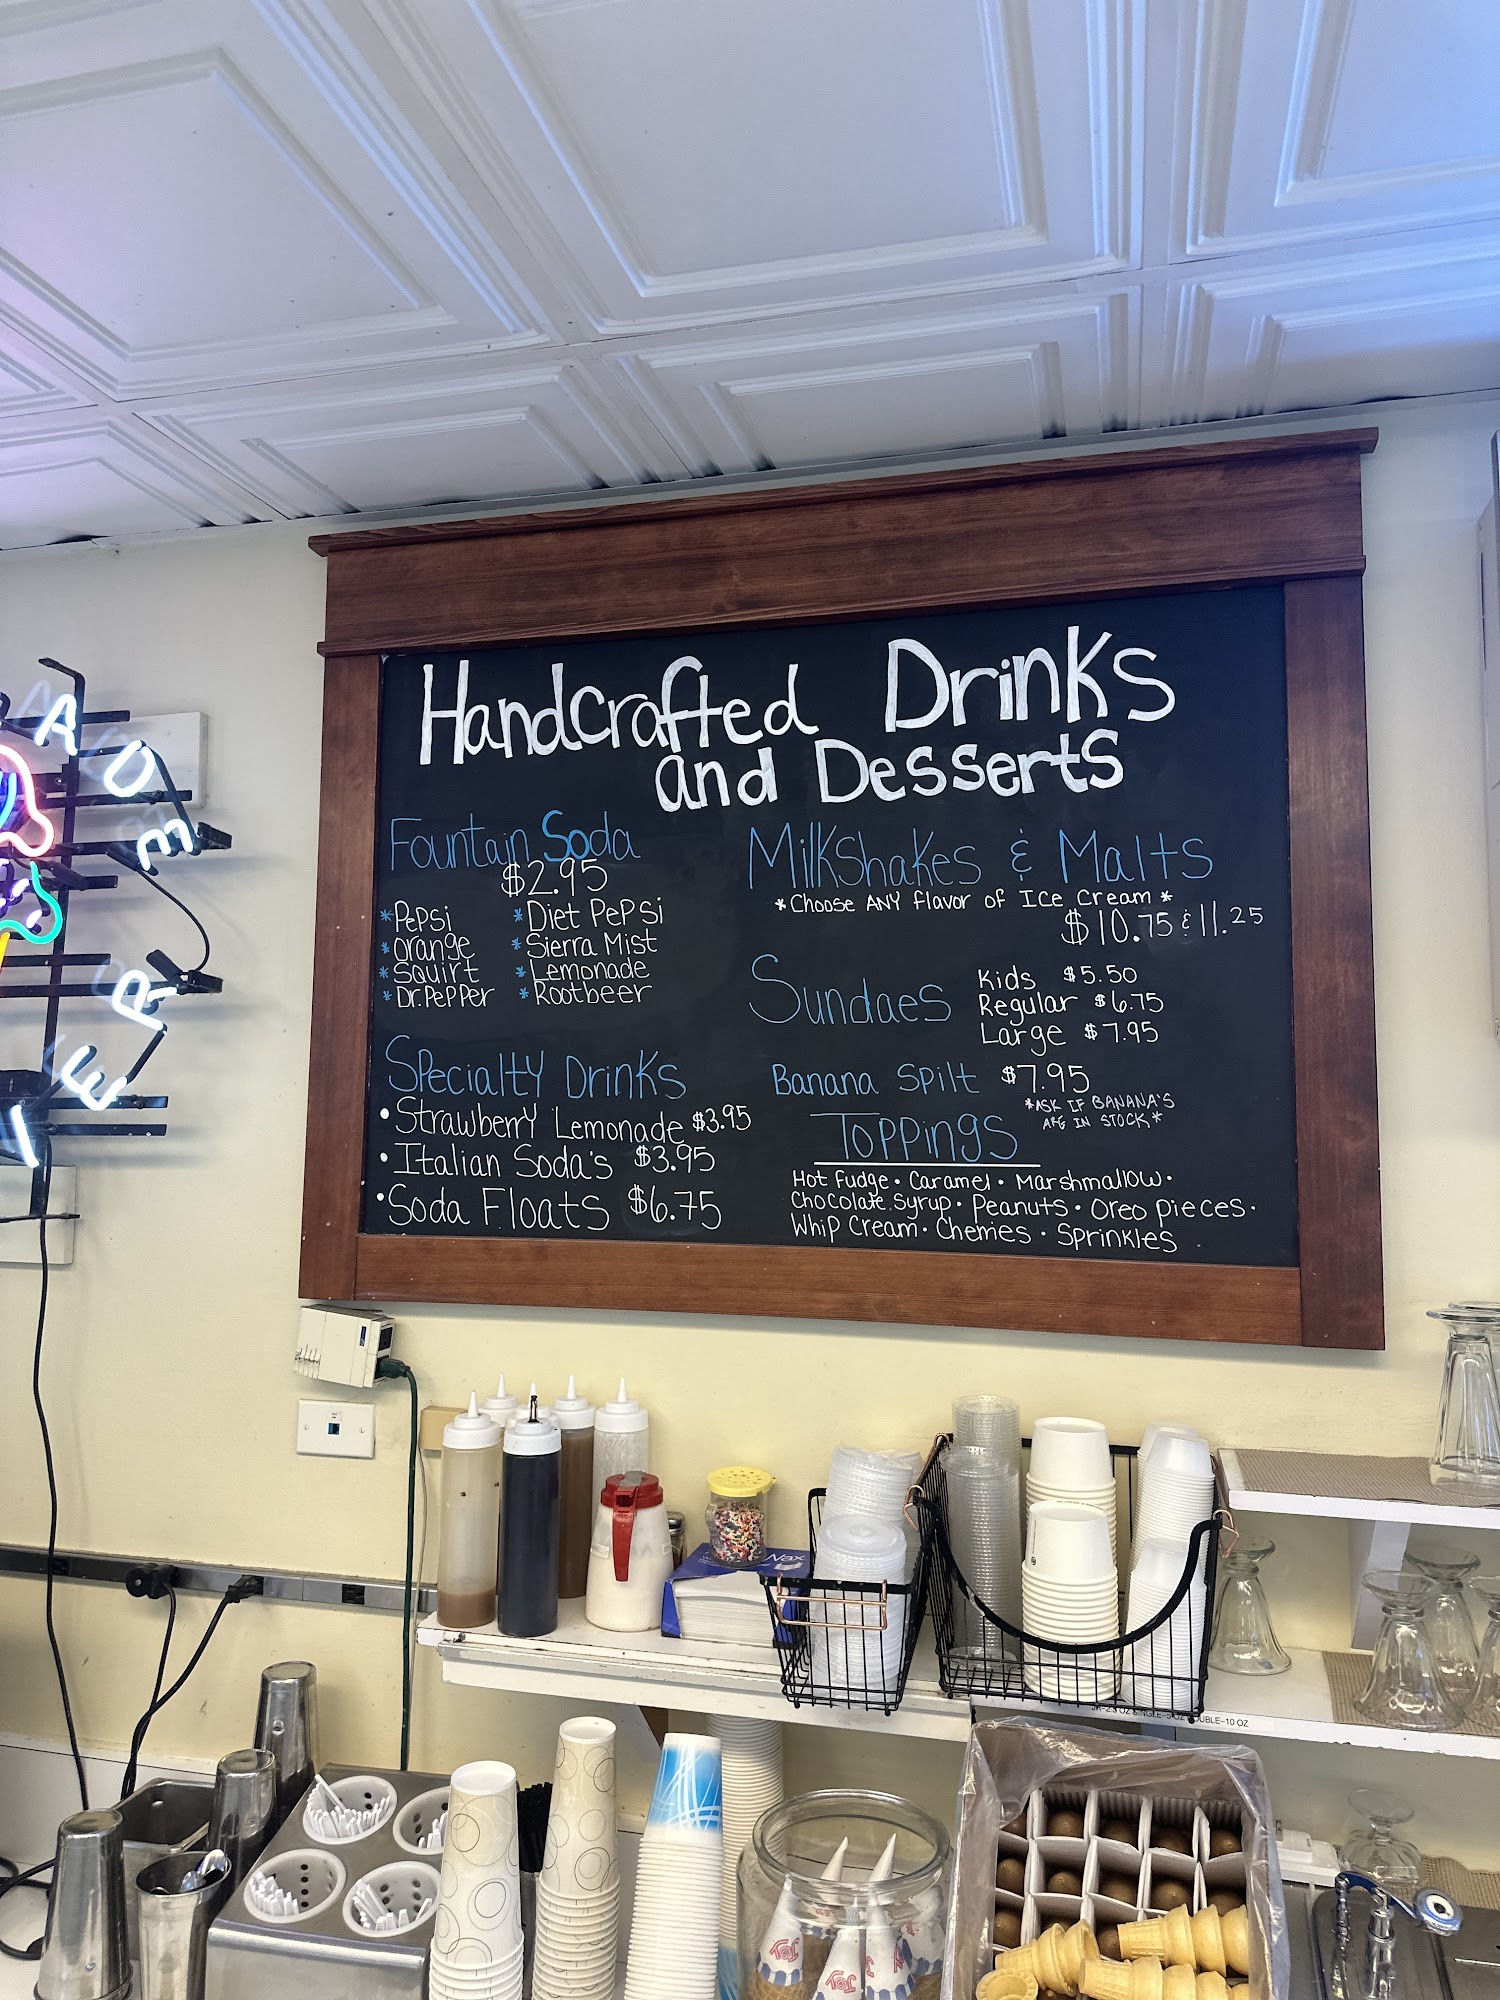 Handcrafted Drinks
and Desserts
Fountain Soda
$2.95
*Pepsi
*orange
*Squirt
*Dr.PePPer
*Diet PePsi
*Sierra Mist
*Lemonade
*Rootbeer
Specialty Drinks
•Strawberry Lemonade $3.95
•Italian Soda's $3.95
•Soda Floats $6.75
Milkshakes & Malts
*Choose ANY flavor of Ice Cream*
$10.75 & 11.25
Sundaes
Kids $5.50
Regular $6.75
Large $7.95
Banana Spilt $7.95
*ASK IF BANANA'S
ARE IN STOCK*
Toppings
Hot Fudge • Caramel • Marshmallow •
Chocolate Syrup • Peanuts • Oreo pieces •
Whip Cream • Cherries • Sprinkles
ADE
ER
Wax
JOY
JOY
JOY